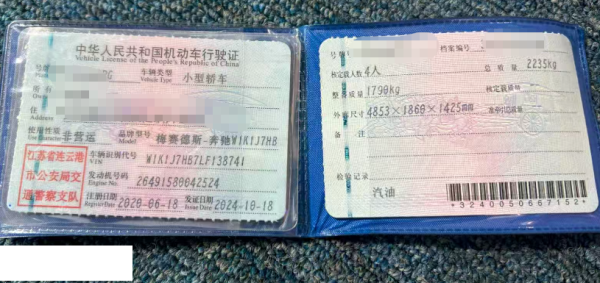 中华人民共和国机动车行驶证
Vehicle License of the People's Republic of China
车辆类型 小型轿车
Vehicle Type
Address
使用性质 非营运 品牌型号 梅赛德斯-奔驰W1K1J7HB
Use Character Model
江苏省连云港
市公安局交
通警察支队
车辆识别代号 W1K1J7HB7LF138741
VIN
发动机号码 26491580042524
Engine No.
注册日期 2020-06-18 发证日期 2024-10-18
Register Date Issue Date
号牌 档案编号
核定载人数 4人 总质量 2235kg
整备质量 1790kg 核定载质量
外廓尺寸 4853×1860×1425mm
备注
检验记录
汽油
*3240050667152*